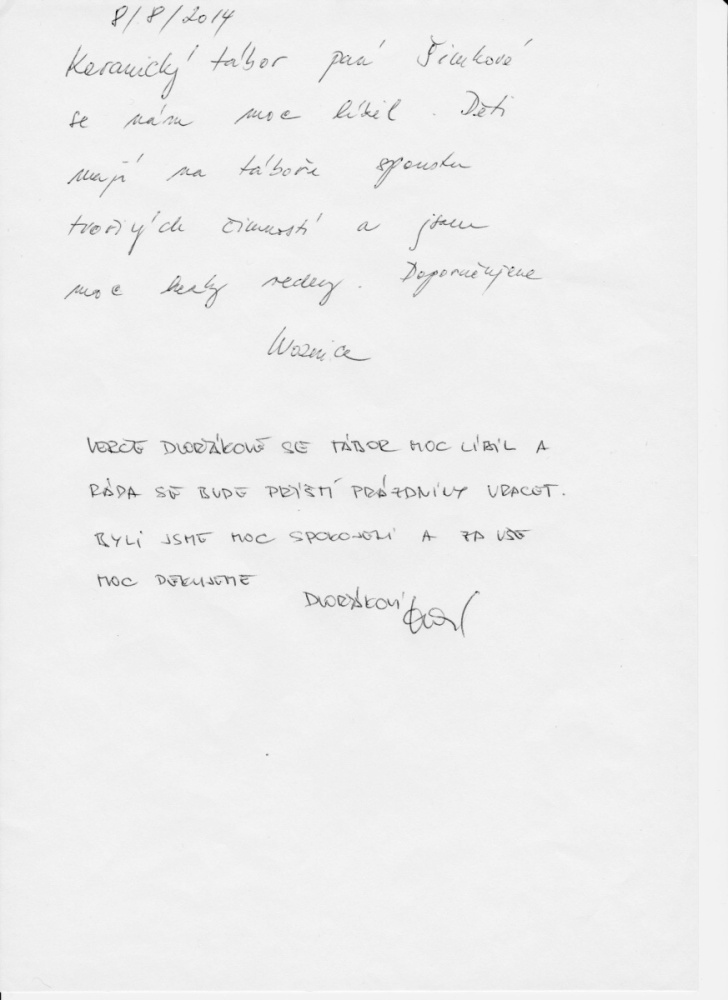 8/8/2014
Keramický tábor paní Šimkové
se nám moc líbil. Děti
mají na táboře spoustu
tvořivých činností a jsou
moc hezky vedeny. Doporučujeme
Woznica
VERČE DVOŘÁKOVÉ SE TÁBOR MOC LÍBIL A
RÁDA SE BUDE PŘÍŠTÍ PRÁZDNINY VRACET.
BYLI JSME MOC SPOKOJENI A ZA VŠE
MOC DĚKUJEME
DVOŘÁKOVI